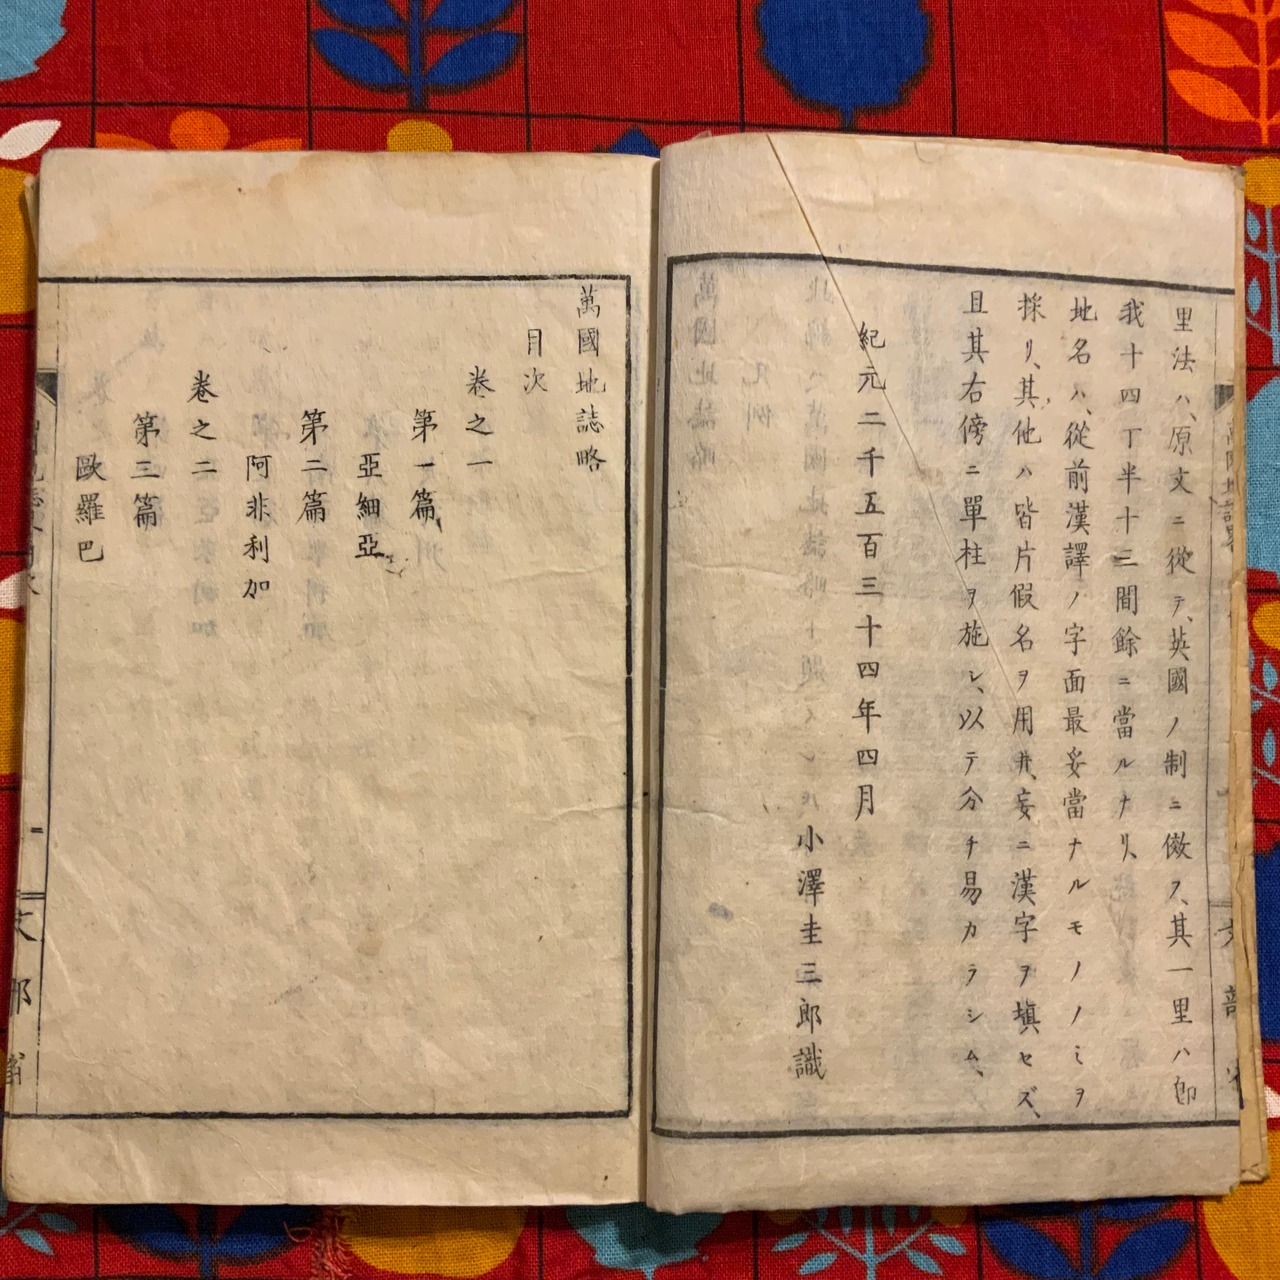 里法ハ、原文ニ從テ、英國ノ制ニ倣フ、其一里ハ卽
我十四丁半十三間餘ニ當ルナリ、
地名ハ、從前漢譯ノ字面最妥當ナルモノノミヲ
採リ、其他ハ皆片假名ヲ用井、妄ニ漢字ヲ塡セズ、
且其右傍ニ單柱ヲ施シ、以テ分チ易カラシム、
紀元二千五百三十四年四月
小澤圭三郎識
萬國地誌略
目次
卷之一
第一篇
亞細亞
第二篇
阿非利加
卷之二
第三篇
歐羅巴
文部省